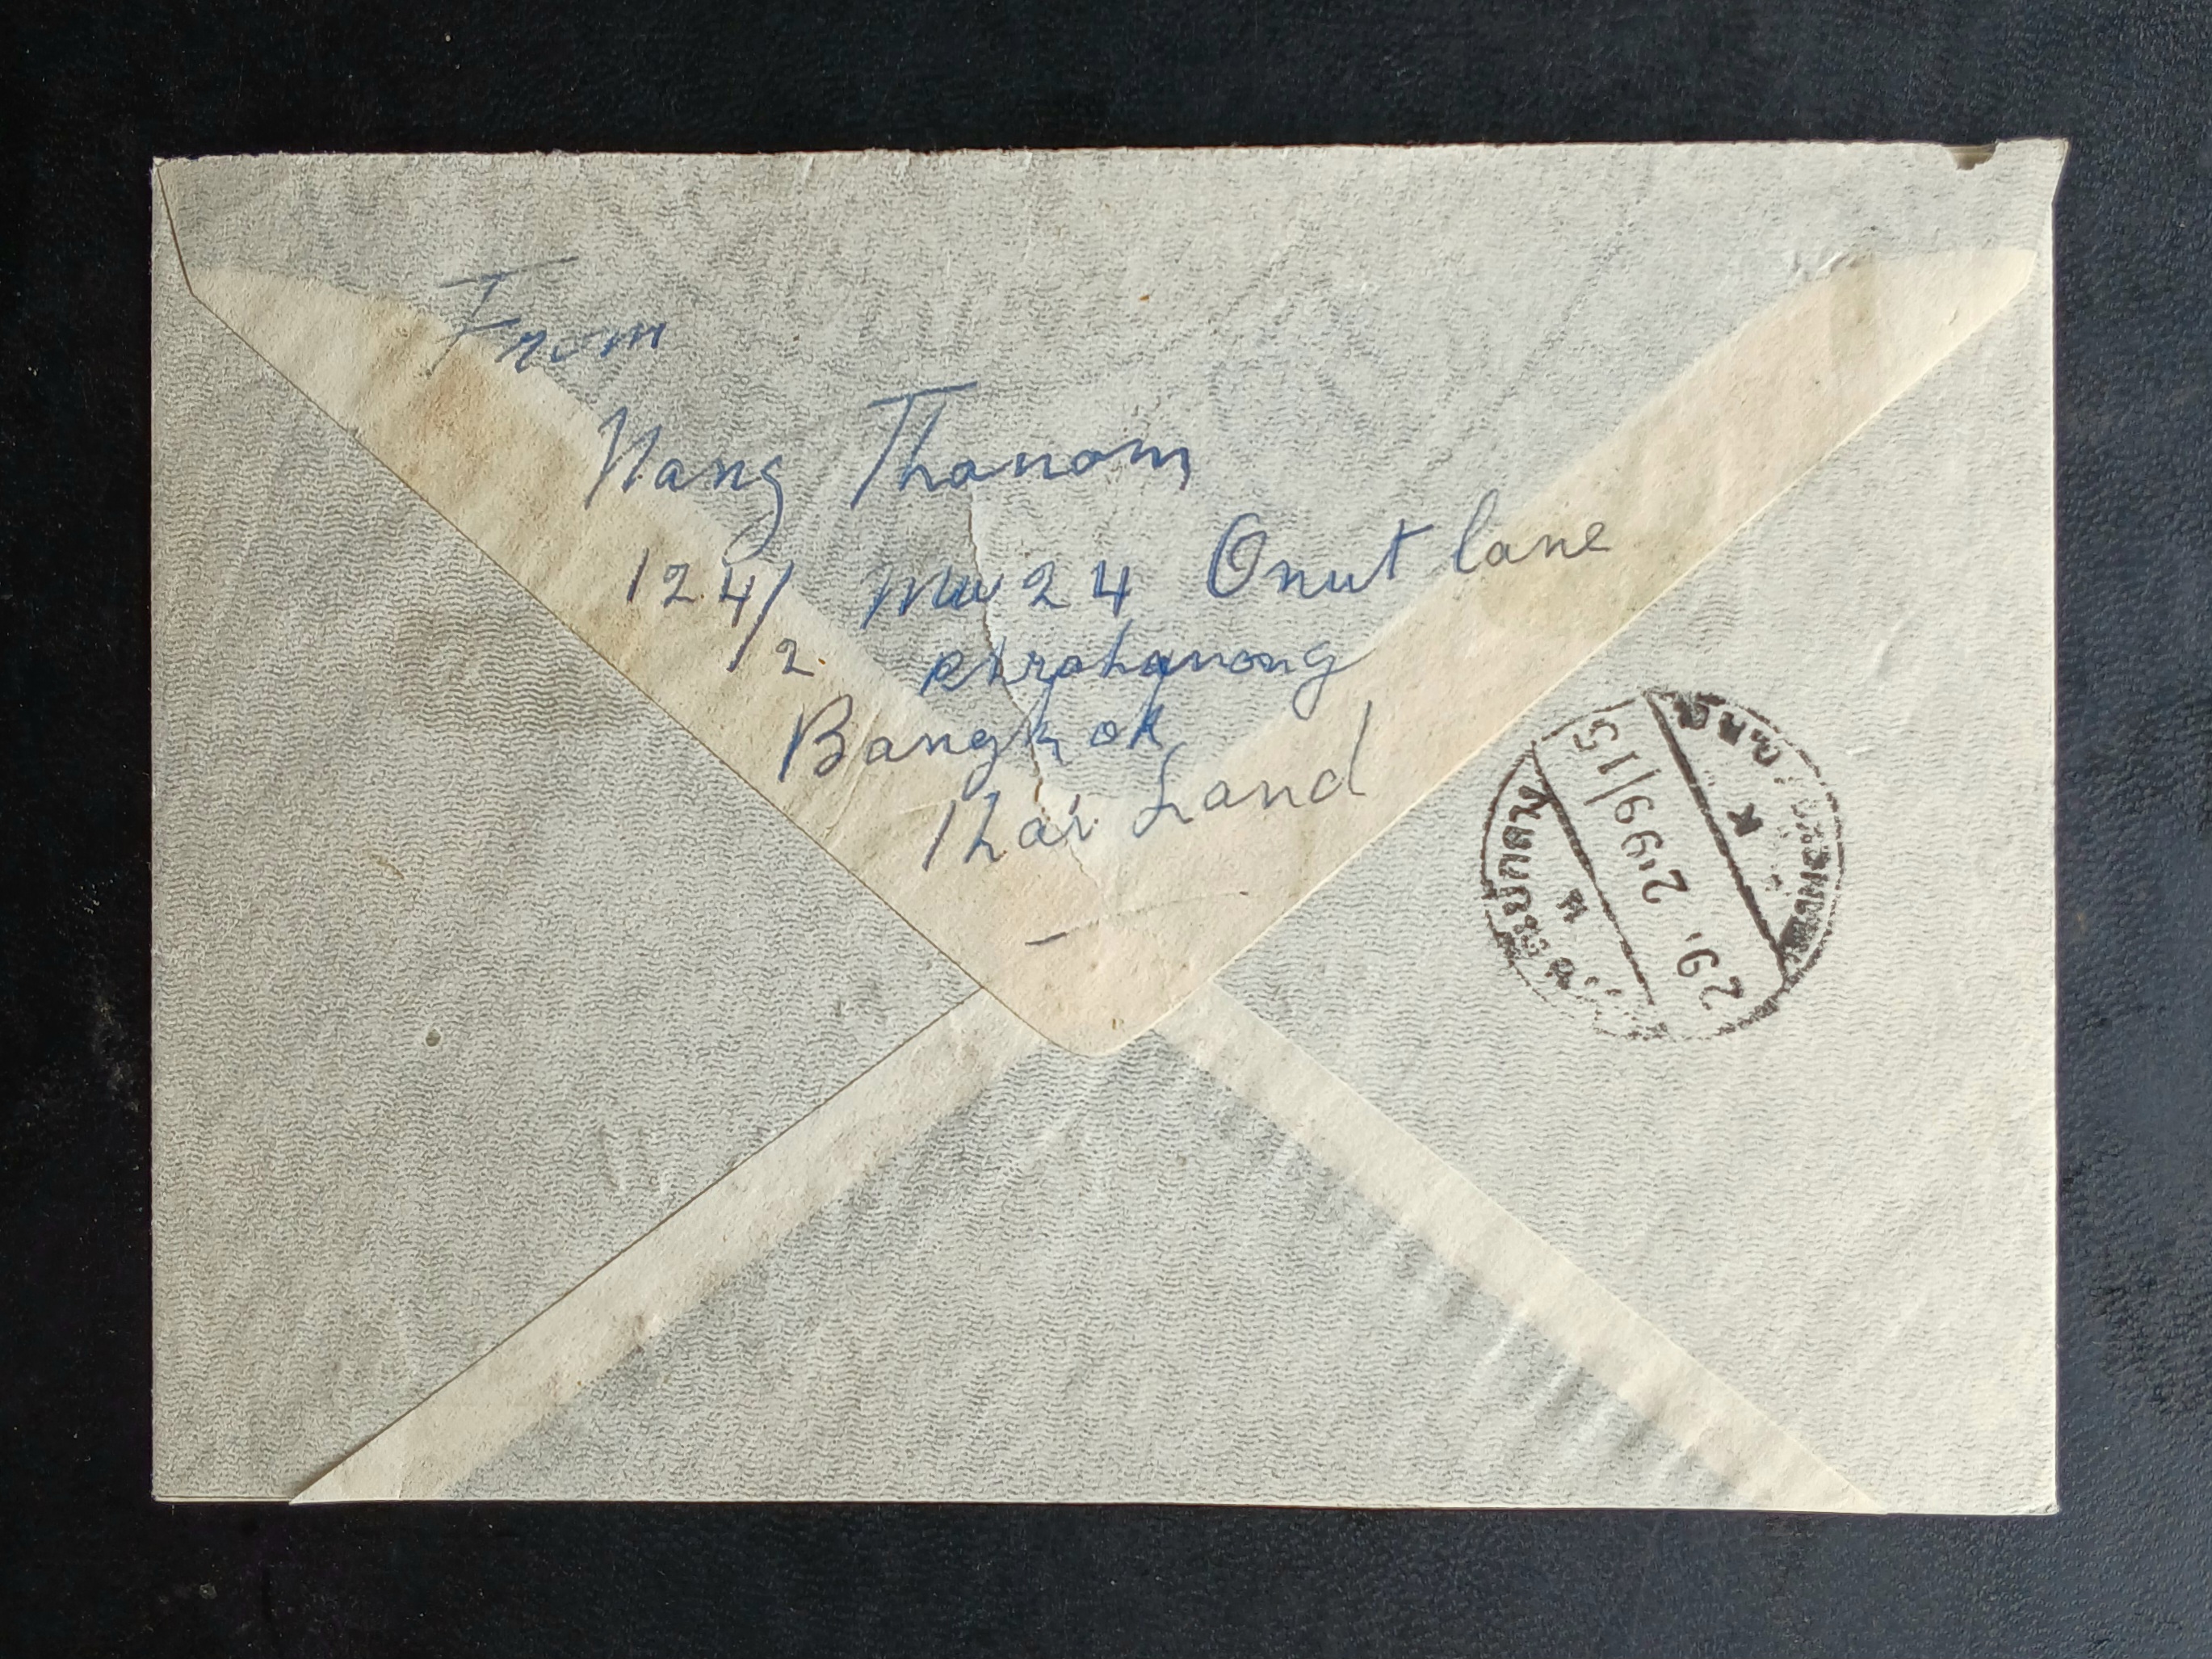 From
Nang Thanom
124/2 mu 24 Onut lane
Phrakanong
Bangkok
Thai Land
29. 2.99|15